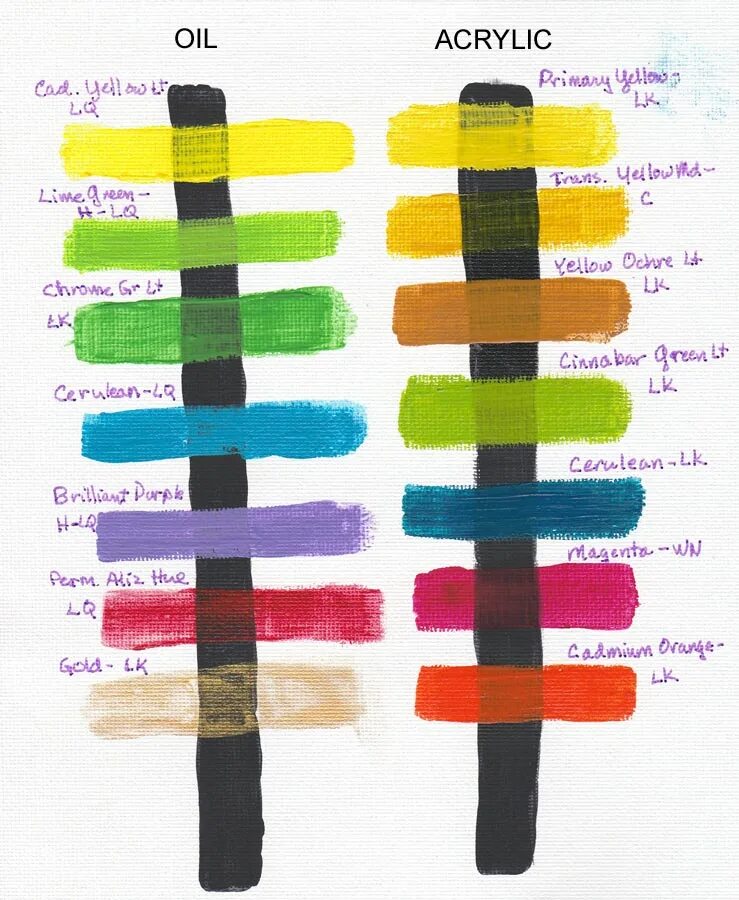 OIL
Cad. Yellow Lt
LQ
Lime Green -
H-LQ
Chrome Gr Lt
LK
Cerulean-LQ
Brilliant Purple
H-LQ
Perm. Aliz Hue
LQ
Gold- LK
ACRYLIC
Primary Yellow-
LK
Trans. Yellow Md-
C
Yellow Ochre Lt
LK
Cinnabar Green Lt
LK
Cerulean-LK
Magenta-WN
Cadmium Orange-
LK